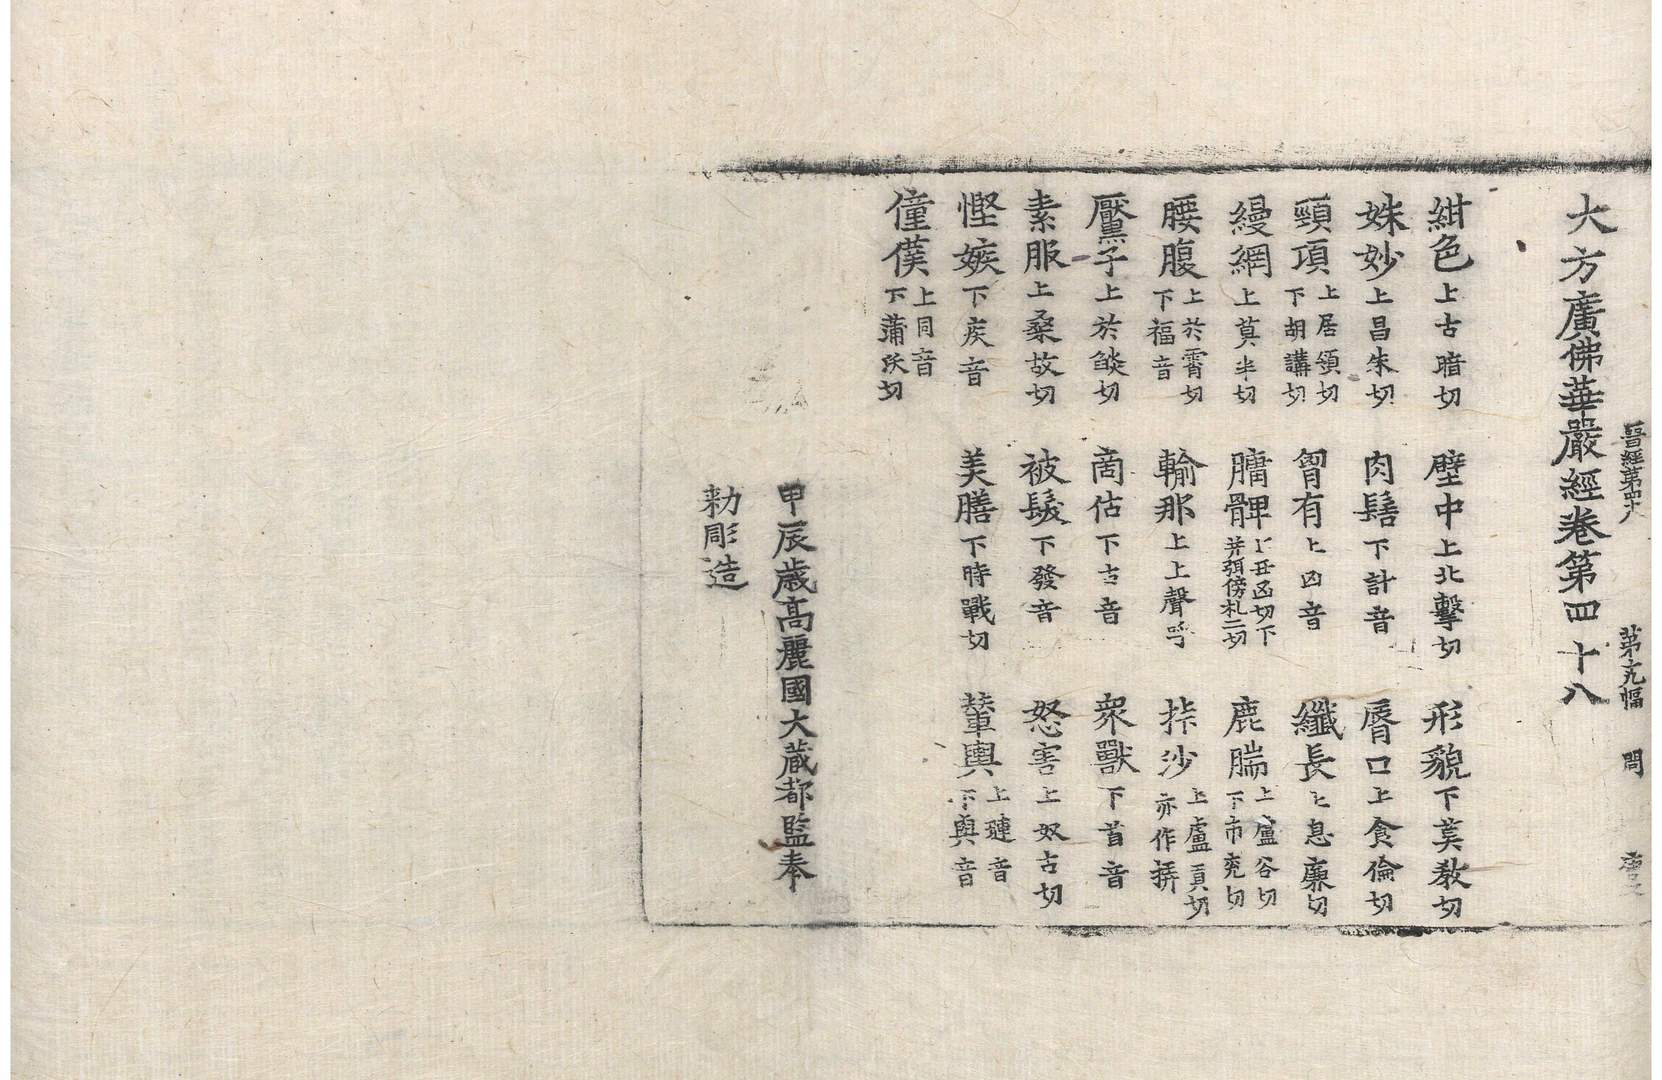 晉經第四十八 第十九幅 問
大方廣佛華嚴經卷第四十八
紺色上古暗切 壁中上北擊切 形貌下莫教切
姝妙上昌朱切 肉髻下計音 脣口上食倫切
頸項上居領切下胡講切 胷有上凶音 纖長上息廉切
縵網上莫半切 𦟛髀上丑凶切下并弭傍札二切 鹿腨上盧谷切下市兖切
腰腹上於霄切下福音 輸那上上聲呼 捇沙上盧貢切亦作㧣
黶子上於琰切 商估下古音 衆獸下首音
素服上桑故切 被髮下發音 怒害上奴古切
慳嫉下疾音 美膳下時戰切 輦輿上璉音下與音
僮僕上同音下蒲沃切
甲辰歲高麗國大藏都監奉
勅彫造